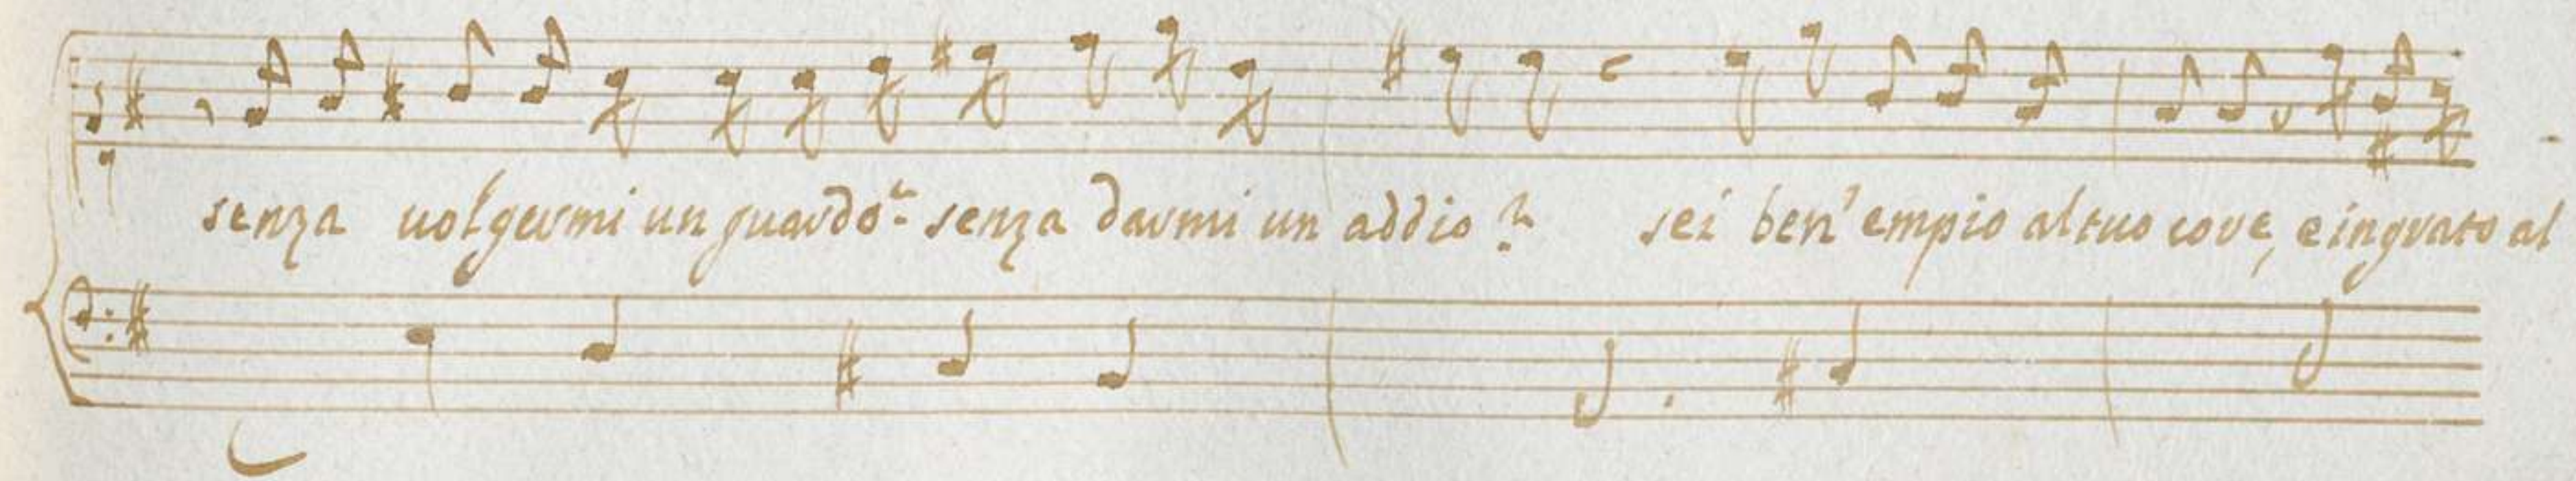 senza uolgermi un guardo? senza darmi un addio? sei ben'empio al tuo core, e ingrato al